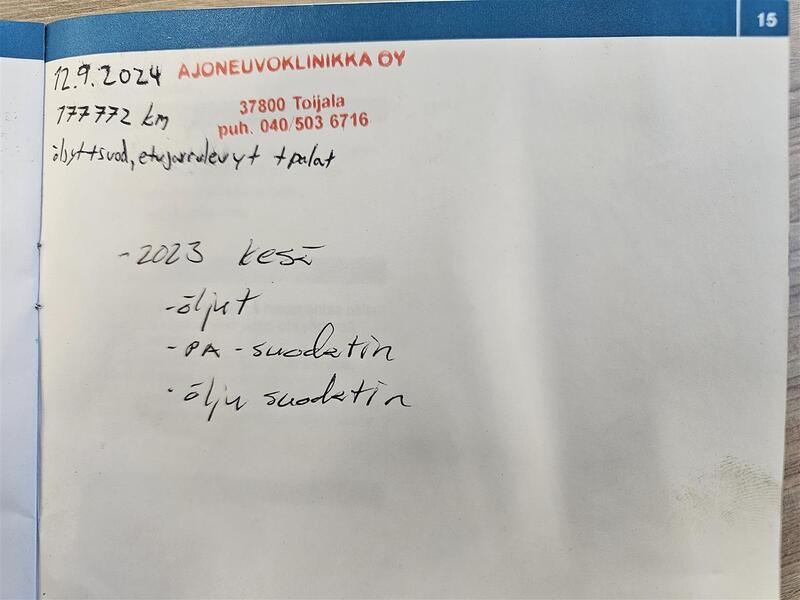 15
12.9.2024 AJONEUVOKLINIKKA OY
177772 km
37800 Toijala
puh. 040/503 6716
öljyt+suod, etujarrulevyt +palat
-2023 kesä
-öljyt
-PA-suodatin
-öljy suodatin